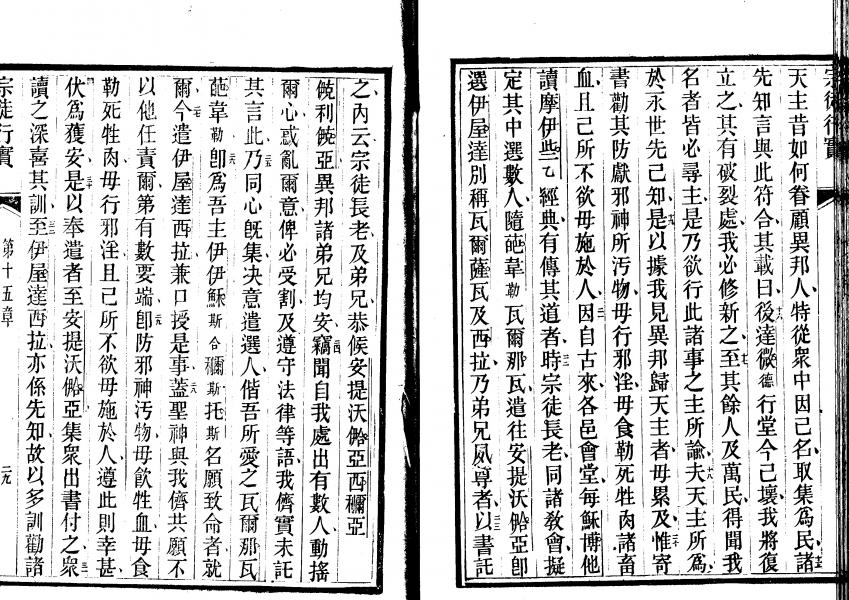 宗徒行實
天主昔如何眷顧異邦人特從衆中因己名取集爲民諸
先知言與此符合其載曰後達微德行堂今已壞我將復
立之其有破裂處我必修新之至其餘人及萬民得聞我
名者皆必尋主是乃欲行此諸事之主所諭夫天主所爲
於永世先已知是以據我見異邦歸天主者毋累及惟寄
書勸其防獻邪神所汚物毋行邪淫毋食勒死牲肉諸畜
血且己所不欲毋施於人因自古來各邑會堂每穌博他
讀摩伊些乙經典有傳其道者時宗徒長老同諸敎會擬
定其中選數人隨葩韋勒瓦爾那瓦遣往安提沃㒲亞卽
選伊屋達別稱瓦爾薩瓦及西拉乃弟兄夙尊者以書託
之內云宗徒長老及弟兄恭候安提沃㒲亞西穪亞
利亞異邦諸弟兄均安竊聞自我處出有數人動搖
爾心惑亂爾意俾必受割及遵守法律等語我儕實未託
其言此乃同心旣集决意遣選人偕吾所愛之瓦爾那瓦
葩韋勒卽爲吾主伊伊穌斯合穪斯托斯名願致命者就
爾今遣伊屋達西拉兼口授是事蓋聖神與我儕共願不
以他任責爾第有數要端卽防邪神汚物毋飮牲血毋食
勒死牲肉毋行邪淫且己所不欲毋施於人遵此則幸甚
伏爲獲安是以奉遣者至安提沃㒲亞集衆出書付之衆
讀之深喜其訓至伊屋達西拉亦係先知故以多訓勸諸
宗徒行實
第十五章
二九